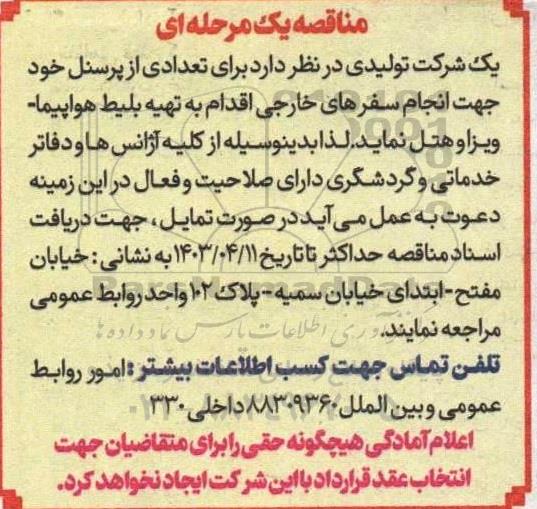 مناقصه یک مرحله ای
یک شرکت تولیدی در نظر دارد برای تعدادی از پرسنل خود
جهت انجام سفرهای خارجی اقدام به تهیه بلیط هواپیما-
ویزا و هتل نماید. لذا بدینوسیله از کلیه آژانس ها و دفاتر
خدماتی و گردشگری دارای صلاحیت و فعال در این زمینه
دعوت به عمل می آید در صورت تمایل، جهت دریافت
اسناد مناقصه حداکثر تا تاریخ ۱۴۰۳/۰۴/۱۱ به نشانی: خیابان
مفتح - ابتدای خیابان سمیه - پلاک ۱۰۲ واحد روابط عمومی
مراجعه نمایند.
تلفن تماس جهت کسب اطلاعات بیشتر: امور روابط
عمومی و بین الملل ۸۸۳۰۹۳۶۰ داخلی ۳۳۰
اعلام آمادگی هیچگونه حقی را برای متقاضیان جهت
انتخاب عقد قرارداد با این شرکت ایجاد نخواهد کرد.